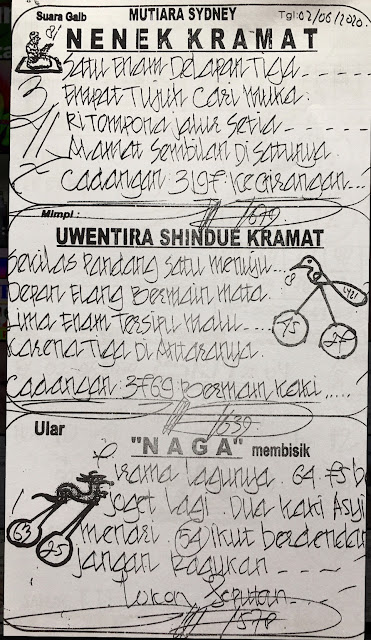 Suara Gaib
MUTIARA SYDNEY
Tgl: 02/06/2020.
NENEK KRAMAT
Satu Enam Delapan Tiga
Empat Tujuh Cari Muka.
Ri Tompona Jalur Setia
Alamat Sembilan Di Satunya
Cadangan 3197 Kegirangan...
679
Mimpi :
UWENTIRA SHINDUE KRAMAT
Sekilas Pandang Satu Menuju...
Depan Elang Bermain Mata.
Lima Enam Tersipu Malu
Karena Tiga Di Antaranya.
Cadangan 3769 Bermain Kaki.....
639
Ular
"NAGA" membisik
Irama Lagunya. 64. 75 b
Joget Lagi Dua Kaki Asyi
63
75
menari 54 ikut berdendan
jangan Ragukan
578